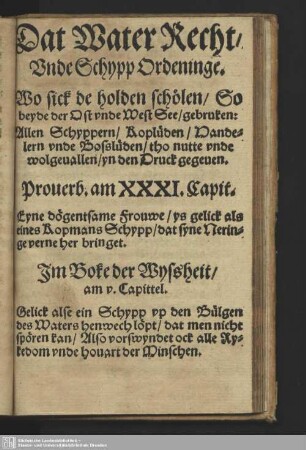 Dat Water Recht/
Vnde Schypp Ordeninge.
Wo sick de holden schölen/ So
beyde der Ost vnde West See/gebruken:
Allen Schyppern/ Koplüden/ Vande-
lern vnde Boßlüden/ tho nutte vnde
wolgeuallen/ yn den Druck gegeuen.
Prouerb. am XXXI. Capit.
Eyne dögentsame Frouwe/ ys gelick als
eines Kopmans Schypp/ dat syne Nerin-
ge verne her bringet.
Im Boke der Wyßheit/
am v. Capittel.
Gelick alse ein Schypp vp den Bülgen
des Waters henwech löpt/ dat men nicht
spören kan/ Also vorswyndet ock alle Ry-
kedom vnde houart der Minschen.